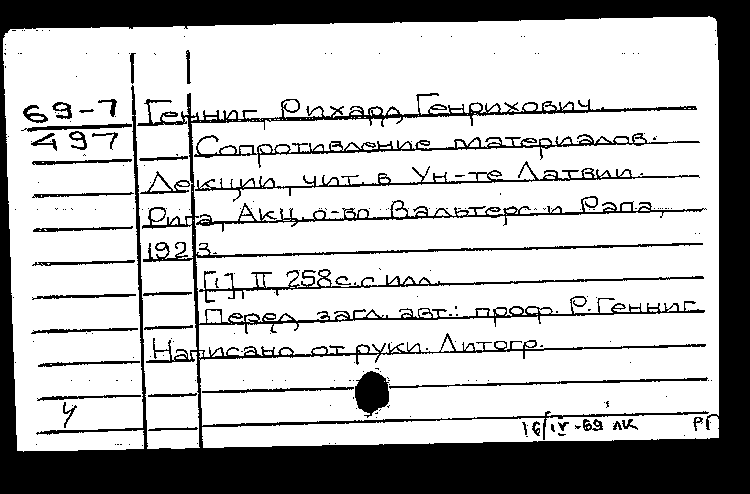 69-7 Генниг, Рихард Генрихович.
497 Сопротивление материалов.
Лекции, чит. в Ун-те Латвии.
Рига, Акц. о-во Вальтерс и Рапа,
1923.
[1], II, 258 с. с илл.
Перед загл. авт.: проф. Р. Генниг
Написано от руки. Литогр.
16/IV-69 ЛК РГ